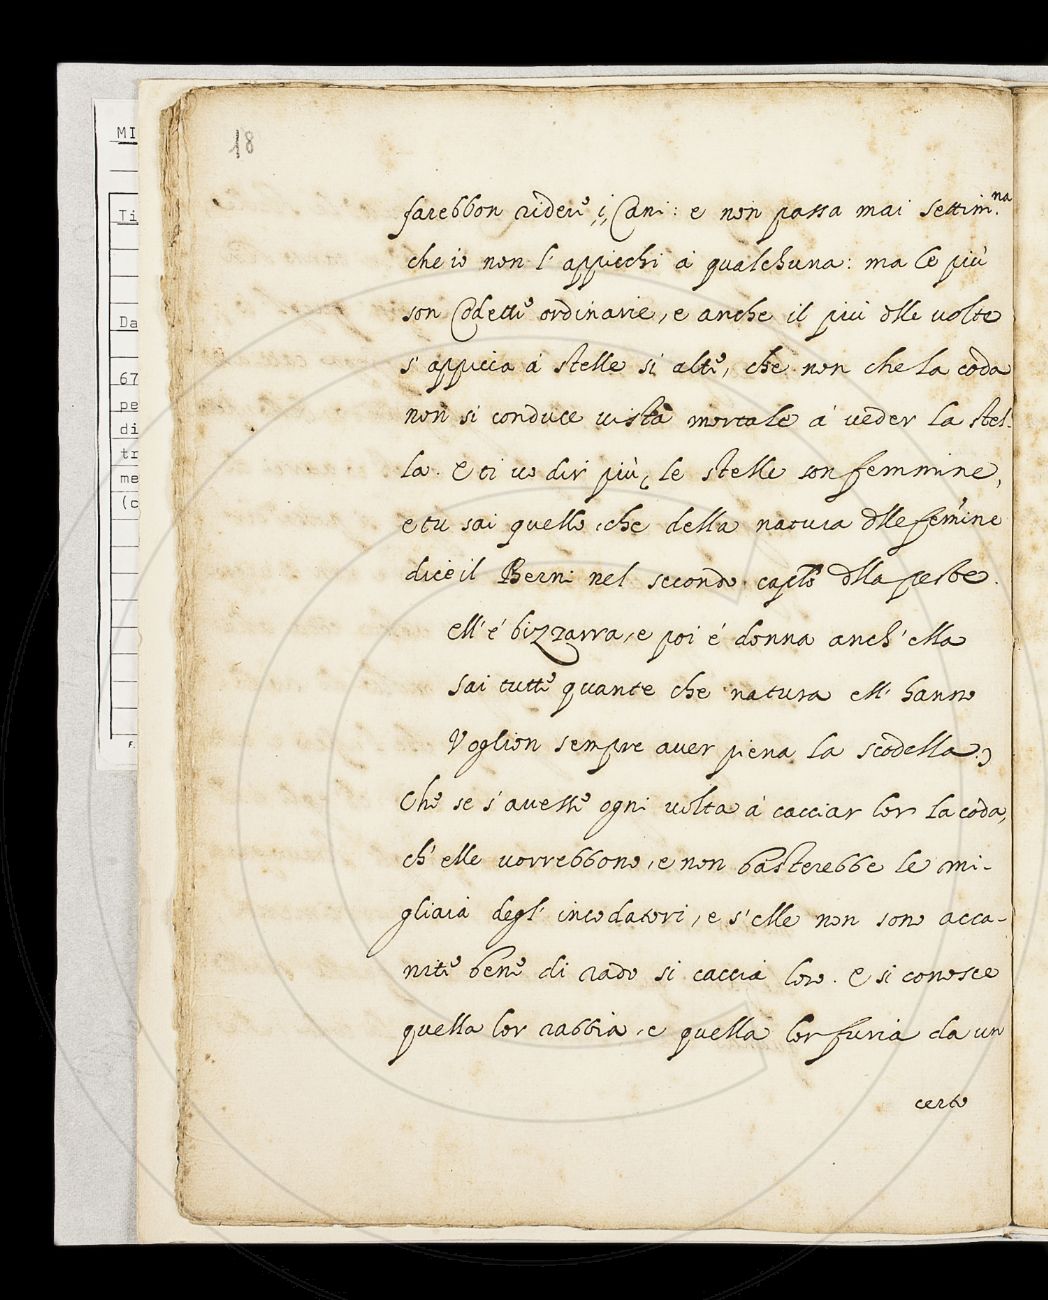 18
farebbon rider i Cani: e non passa mai settim.na
che io non l'appicchi a qualchuna: ma le più
son Codette ordinarie, e anche il più dlle uolte
s'appicca á stelle si alte, che non che la coda
non si conduce uista mortale á ueder la stel-
la. E ti uo dir più, le stelle son femmine,
e tu sai quello, che della natura dlle fem̃ine
dice il Berni nel secondo caplo dlla peste.
ell'é bizzarra, e poi é donna anch'ella
sai tutte quante che natura ell'hanno
Voglion sempre auer piena la scodella.
Che se s'auesse ogni uolta á cacciar lor la coda,
ch'elle uorrebbono, e non basterebbe le mi-
gliaia degl'incodatori, e s'elle non sono acca-
nite bene di rado si caccia loro. E si conosce
quella lor rabbia, e quella lor furia da un
certo
MI
Ti
Da
67
pe
di
tr
me
(c
F.